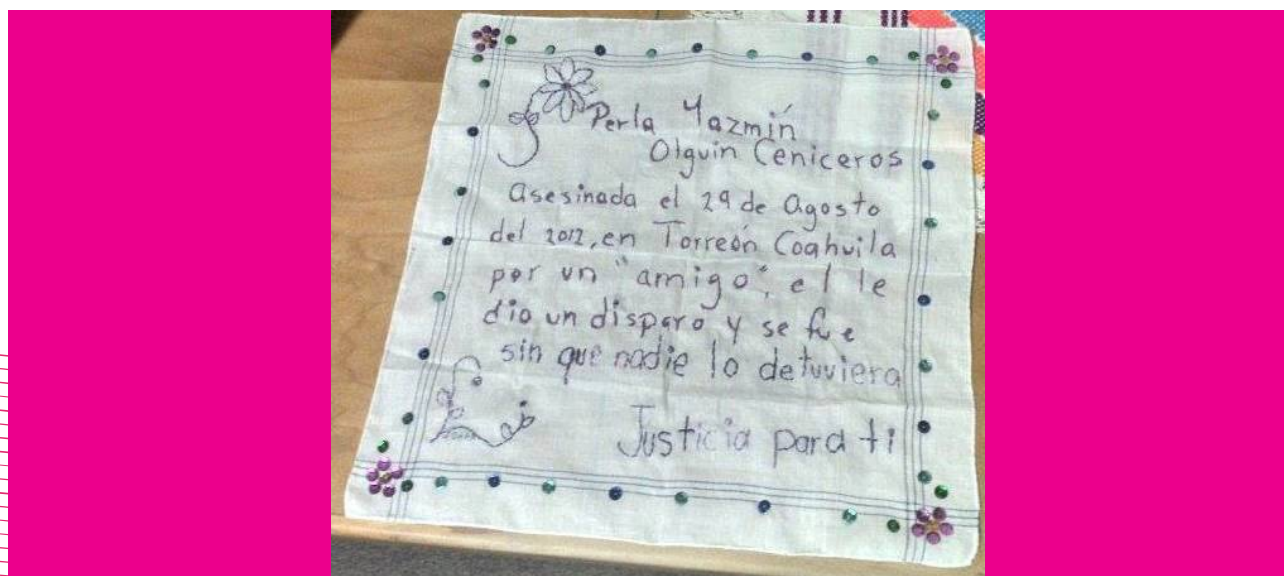 Perla Yazmín
Olguin Ceniceros
asesinada el 29 de Agosto
del 2012, en Torreón Coahuila
por un "amigo", el le
dio un disparo y se fue
sin que nadie lo detuviera
Justicia para ti